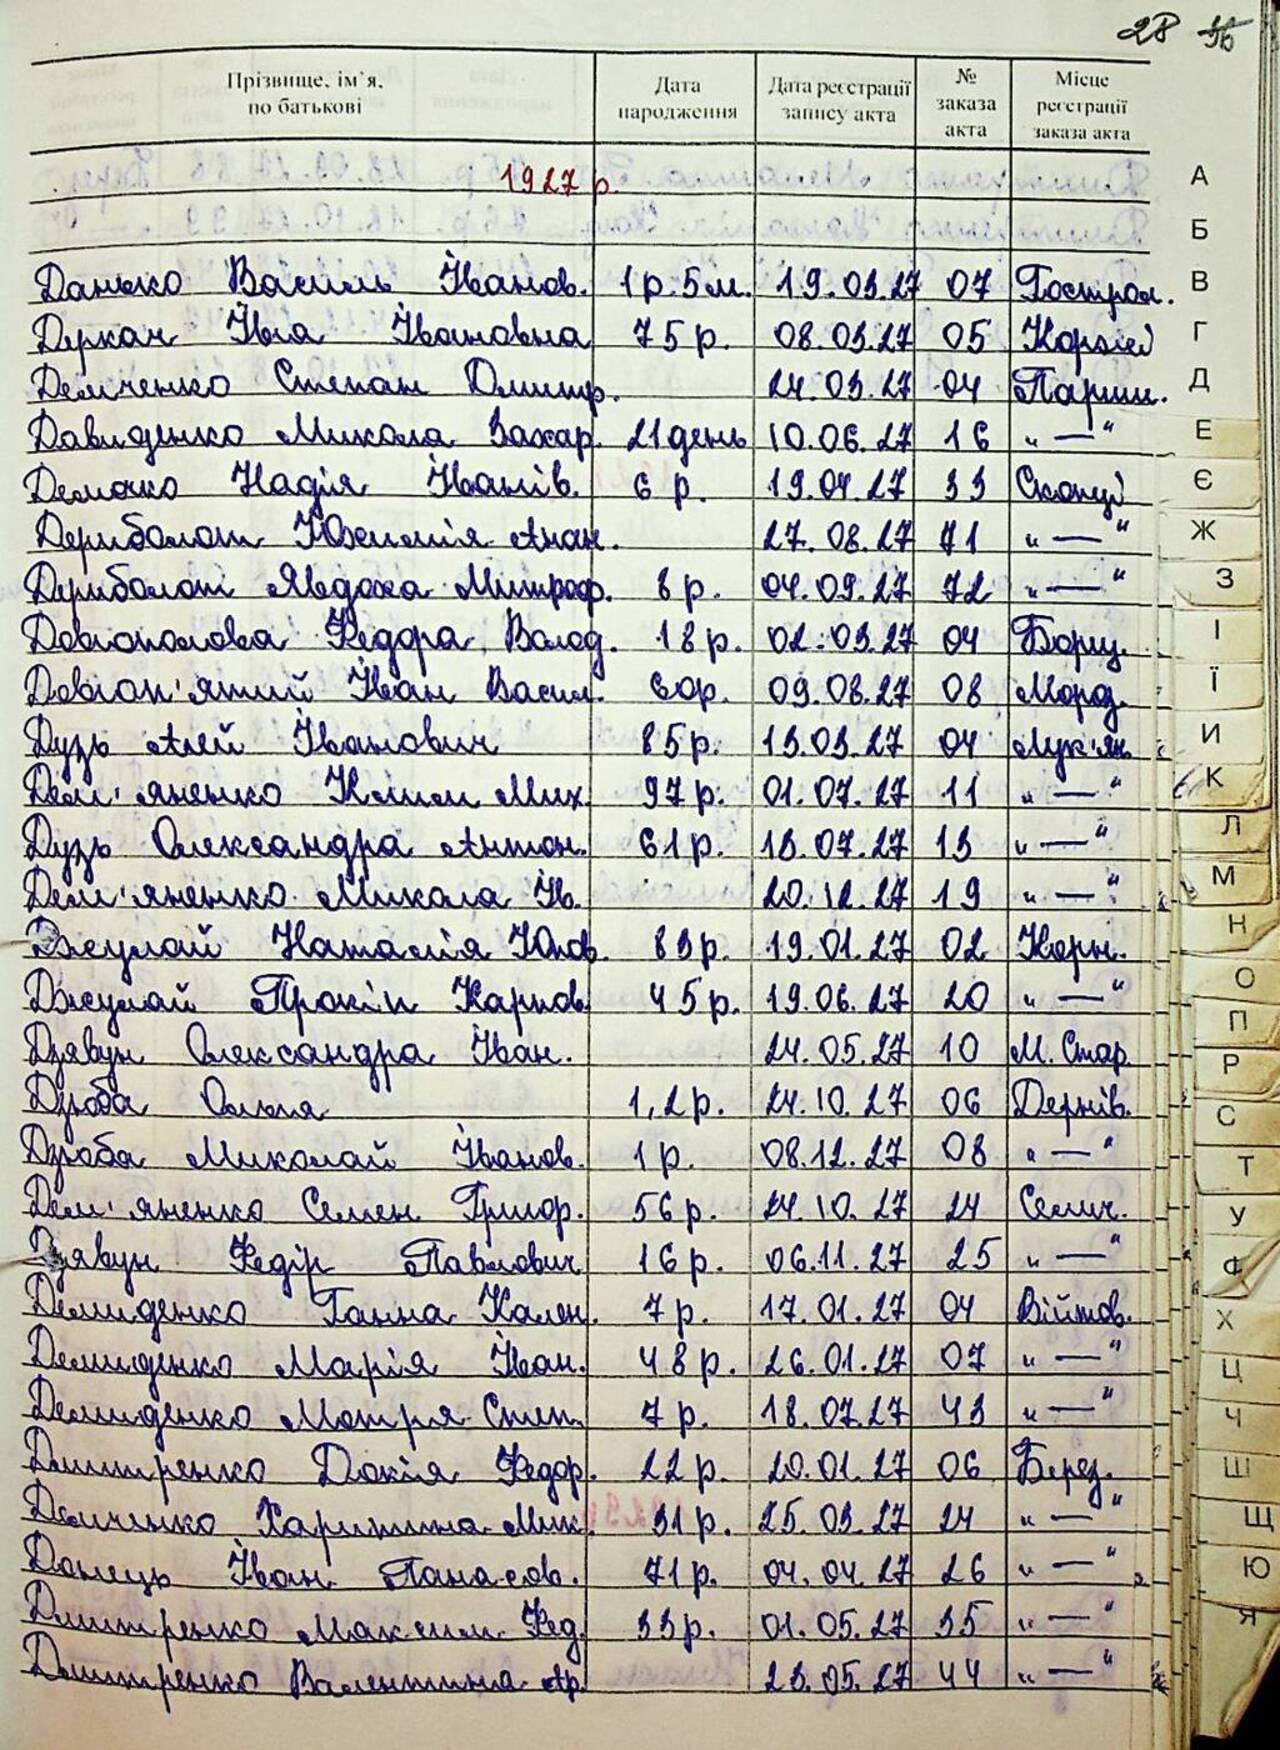 28 96
Прізвище, ім'я, по батькові Дата народження Дата реєстрації запису акта № заказа акта Місце реєстрації заказа акта
1927 р.
Данько Василь Іванов. 1 р. 5 м. 19.03.27 07 Гострол.
Деркач Ївга Івановна 75 р. 08.03.27 05 Коржів
Демченко Степан Дмитр. 24.03.27 04 Париш.
Давиденко Микола Захар. 21 день 10.06.27 16 „ — "
Демочко Надія Іванів. 6 р. 19.04.27 33 Скопці
Дериболот Ювхимія Анан. 27.08.27 71 „ — "
Дериболот Явдоха Митроф. 8 р. 04.09.27 72 „ — "
Довгополова Федора Волод. 18 р. 02.03.27 04 Борщ.
Довгоп'ятий Іван Васил. 60р. 09.08.27 08 Мороз.
Дузь Алей Іванович 85 р. 13.03.27 04 Лук'ян.
Дем'яненко Клим Мих. 97 р. 01.07.27 11 „ — "
Дузь Олександра Антон. 61 р. 13.07.27 13 „ — "
Дем'яненко Микола Ів. 20.12.27 19 „ — "
Джулай Наталія Юхов. 83 р. 19.01.27 02 Корн.
Джулай Прокіп Карпов. 45 р. 19.06.27 20 „ — "
Дзявун Олександра Іван. 24.05.27 10 М. Стар.
Дзюба Ольга 1,2 р. 24.10.27 06 Дернів.
Дзюба Миколай Іванов. 1 р. 08.12.27 08 „ — "
Дем'яненко Семен Григор. 56 р. 24.10.27 24 Селич.
Дзявун Федір Павлович 16 р. 06.11.27 25 „ — "
Демиденко Ганна Кален. 7 р. 17.01.27 04 Війтов.
Демиденко Марія Іван. 48 р. 26.01.27 07 „ — "
Демиденко Мотря Степ. 7 р. 18.07.27 43 „ — "
Дмитренко Докія Федор. 22 р. 20.01.27 06 Берез.
Демченко Харитина Мик. 31 р. 25.03.27 24 „ — "
Донець Іван Панасов. 71 р. 04.04.27 26 „ — "
Дмитренко Максим Фед. 33 р. 01.05.27 35 „ — "
Дмитренко Валентина Ар. 23.05.27 44 „ — "
А
Б
В
Г
Д
Е
Є
Ж
З
І
Ї
И
К
Л
М
Н
О
П
Р
С
Т
У
Ф
Х
Ц
Ч
Ш
Щ
Ю
Я